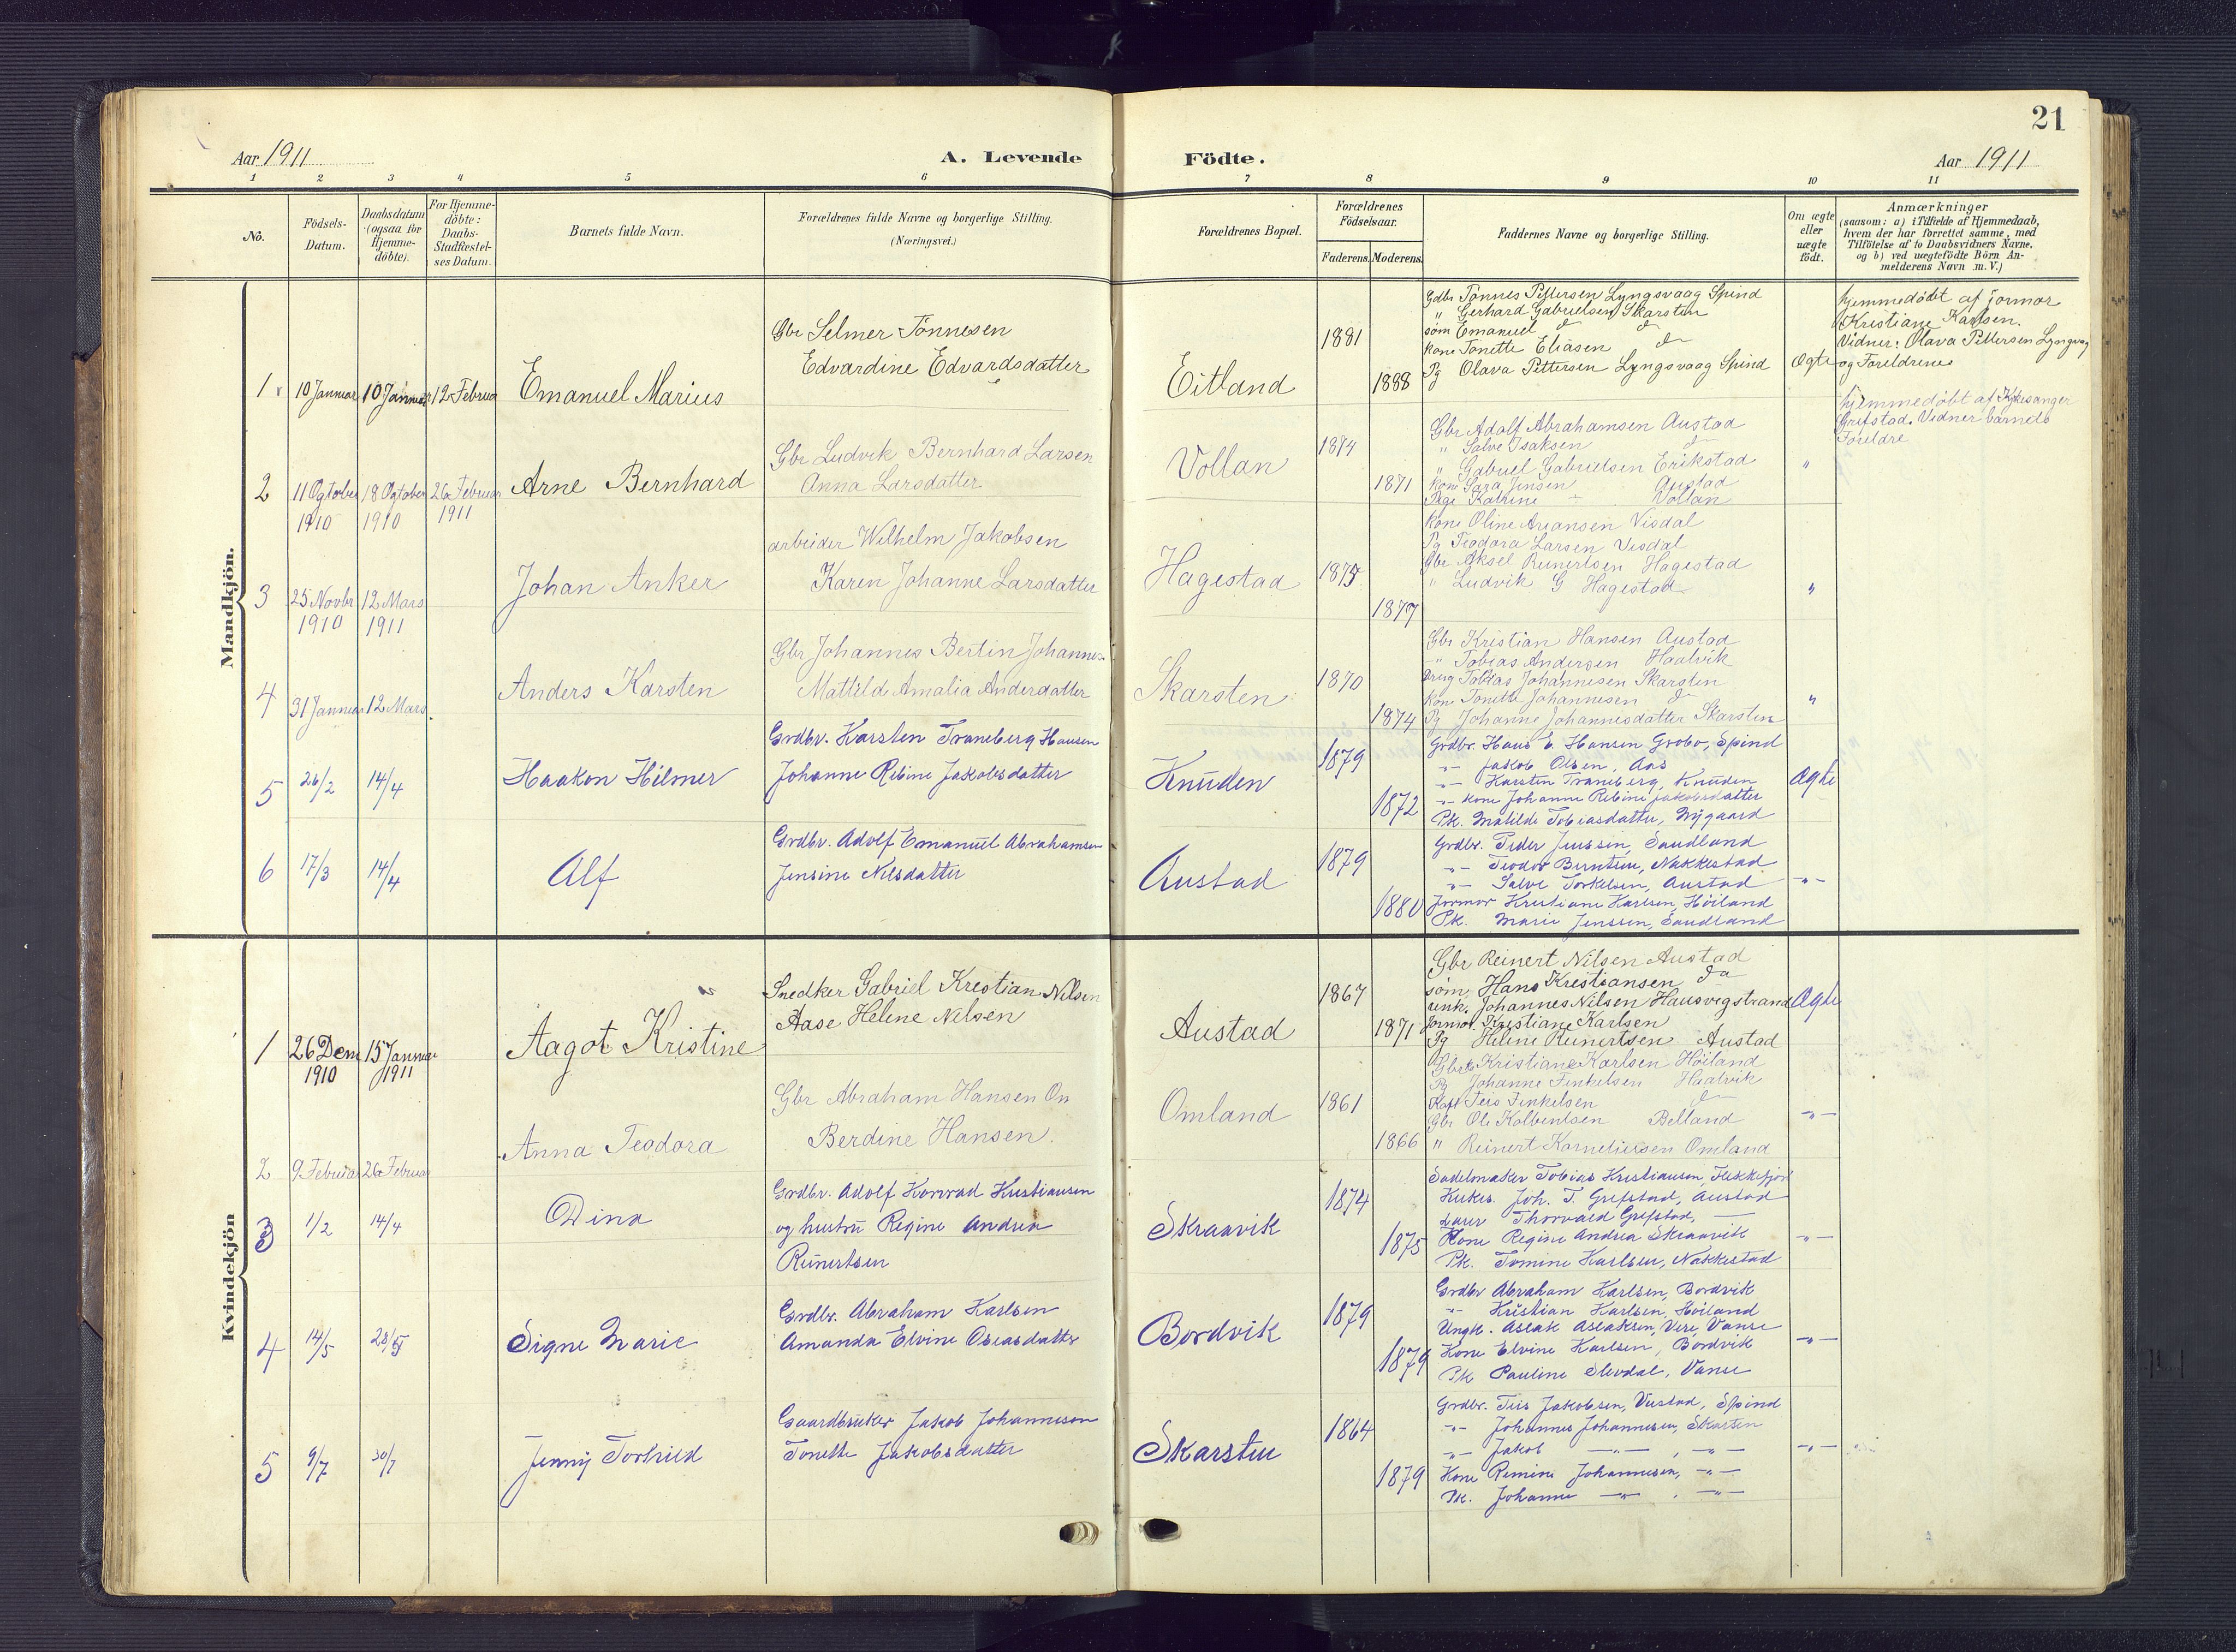 21
Aar 1911
A. Levende
Födte.
Aar 1911
1 2 3 4 5 6 7 8 9 10 11
No.
Födsels-
Datum.
Daabsdatum
(ogsaa for
Hjemme-
döbte).
For Hjemme-
döbte:
Daabs-
Stadfæstel-
ses Datum.
Barnets fulde Navn.
Forældrenes fulde Navne og borgerlige Stilling.
(Næringsvei.)
Forældrenes Bopæl.
Forældrenes
Födselsaar.
Faderens. Moderens.
Faddernes Navne og borgerlige Stilling.
Om ægte
eller
uægte
födt.
Anmærkninger
(saasom: a) i Tilfælde af Hjemmedaab,
hvem der har forrettet samme, med
Tilföielse af to Daabsvidners Navne,
og b) ved uægtefödte Börn An-
melderens Navn m. V.)
Mandkjön.
1 10 Januar 10 Januar 12 Februa
Emanuel Marius
Gbr Selmer Tönnesen
Edvardine Edvardsdatter
Eitland
1881
1888
Gdbr Tönnes Pettersen Lyngsvaag Spind
" Gerhard Gabrielsen Skarsten
söm Emanuel do do
Kone Tonette Eliasen do
Pg Olava Pettersen Lyngsvaag Spind
Ægte
hjemmedöbt af jormor
Kristiane Karlsen.
Vidner: Olava Pettersen Lyngvag
og Foreldrene
2 11 Ogtober 18 Ogtober 26 Februar
1910 1910 1911
Arne Bernhard
Gbr Ludvik Bernhard Larsen
Anna Larsdatter
Vollan
1874
1871
Gbr Adolf Abrahamsen Austad
" Salve Isaksen do
" Gabriel Gabrielsen Erikstad
Kone Sara Jensen Austad
Pige Katrine - Vollan
"
hjemmedöbt af Kirkesanger
Grefstad. Vidner barnets
Foreldre
3 25 Novbr 12 Mars
1910 1911
Johan Anker
arbeider Wilhelm Jakobsen
Karen Johanne Larsdatter
Hagestad
1875
1877
Kone Oline Ariansen Visdal
Pg Teodora Larsen Visdal
Gbr Aksel Reinertsen Hagestad
" Ludvik G Hagestad
"
4 31 Januar 12 Mars.
Anders Karsten
Gbr Johannes Bertin Johannes.
Mattild Amalia Andersdatter
Skarsten
1870
1874
Gbr Kristian Hansen Austad
" Tobias Andersen Haalvik
Tobias Johannesen Skarsten
Kone Tonette Johannesen do
Pg Johanne Johannesdatter Skarsten
"
5 26/2 14/4
Haakon Hilmer
Grdbr. Karsten Traneberg Hansen
Johanne Rebine Jakobsdatter
Knuden
1879
1872
Grdbr. Hans E. Hansen Grobo, Spind
-"- Jakob Olsen, Aas
-"- Karsten Traneberg, Knuden
-"- kone Johanne Rebine Jakobsdatter
Pk. Matilde Tobiasdatter, Nygaard
Ægte
6 17/3 14/4
Alf
Grdbr. Adolf Emanuel Abrahamsen
Jensine Nilsdatter
Austad
1879
1880
Grdbr. Peder Jenssen, Saudland
-"- Teodor Berntsen, Nakkestad
-"- Salve Torkelsen, Austad
Jormor Kristiane Karlsen, Höiland
Pk. Marie Jenssen, Saudland
-"-
Kvindekjön
1 26 Dem 15 Januar
1910 1911
Aagot Kristine
Snedker Gabriel Krestian Nilsen
Aase Helene Nilsen
Austad
1867
1871
Gbr Reinert Nilsen Austad
söm. Hans Krestiansen do
unk. Johannes Nilsen Hausvigstrand
Jormor. Krestiane Karlsen
Pg Helene Reinertsen Austad
Ægte
2 9 Februar 26 Februar
Anna Teodora
Gbr Abraham Hansen Om
Berdine Hansen.
Omland
1861
1866
Kristiane Karlsen Höiland
Pg Johanne Finkelsen Haalvik
Teis Finkelsen do
Gbr Ole Kolbentsen Belland
" Reinert Korneliussen Omland
-"-
3 1/2 14/4
Dina
Grdbr. Adolf Konrad Kristiansen
og hustru Regine Andrea
Reinertsen
Skraavik
1874
1875
Sadelmaker Tobias Kristiansen, Flekkefjord
Kirkes. Joh. T. Grefstad, Austad
Lærer Thorvald Grefstad, —
Kone Regine Andrea Skraavik
Pk. Tomine Karlsen, Nakkestad
-"-
4 14/5 28/5
Signe Marie
Grdbr. Abraham Karlsen
Amanda Elvine Oseasdatter
Bordvik
1879
1879
Grdbr Abraham Karlsen, Bordvik
-"- Kristian Karlsen, Höiland
Ungk. Aslak Aslaksen, Vere, Vanse
Kone Elvine Karlsen, Bordvik
Pk Pauline Slevdal, Vanse
-"-
5 9/7 30/7
Jenny Torhild
Gaardbruker Jakob Johannesen
Tonette Jakobsdatter
Skarsten
1864
1879
Grdbr. Teis Jakobsen, Vestad, Spind
-"- Johannes Johannesen, Skarsten
-"- Jakob -"-, -"-
Kone Remine Johannesen, -"-
Pk. Johanne -"- , -"-
-"-